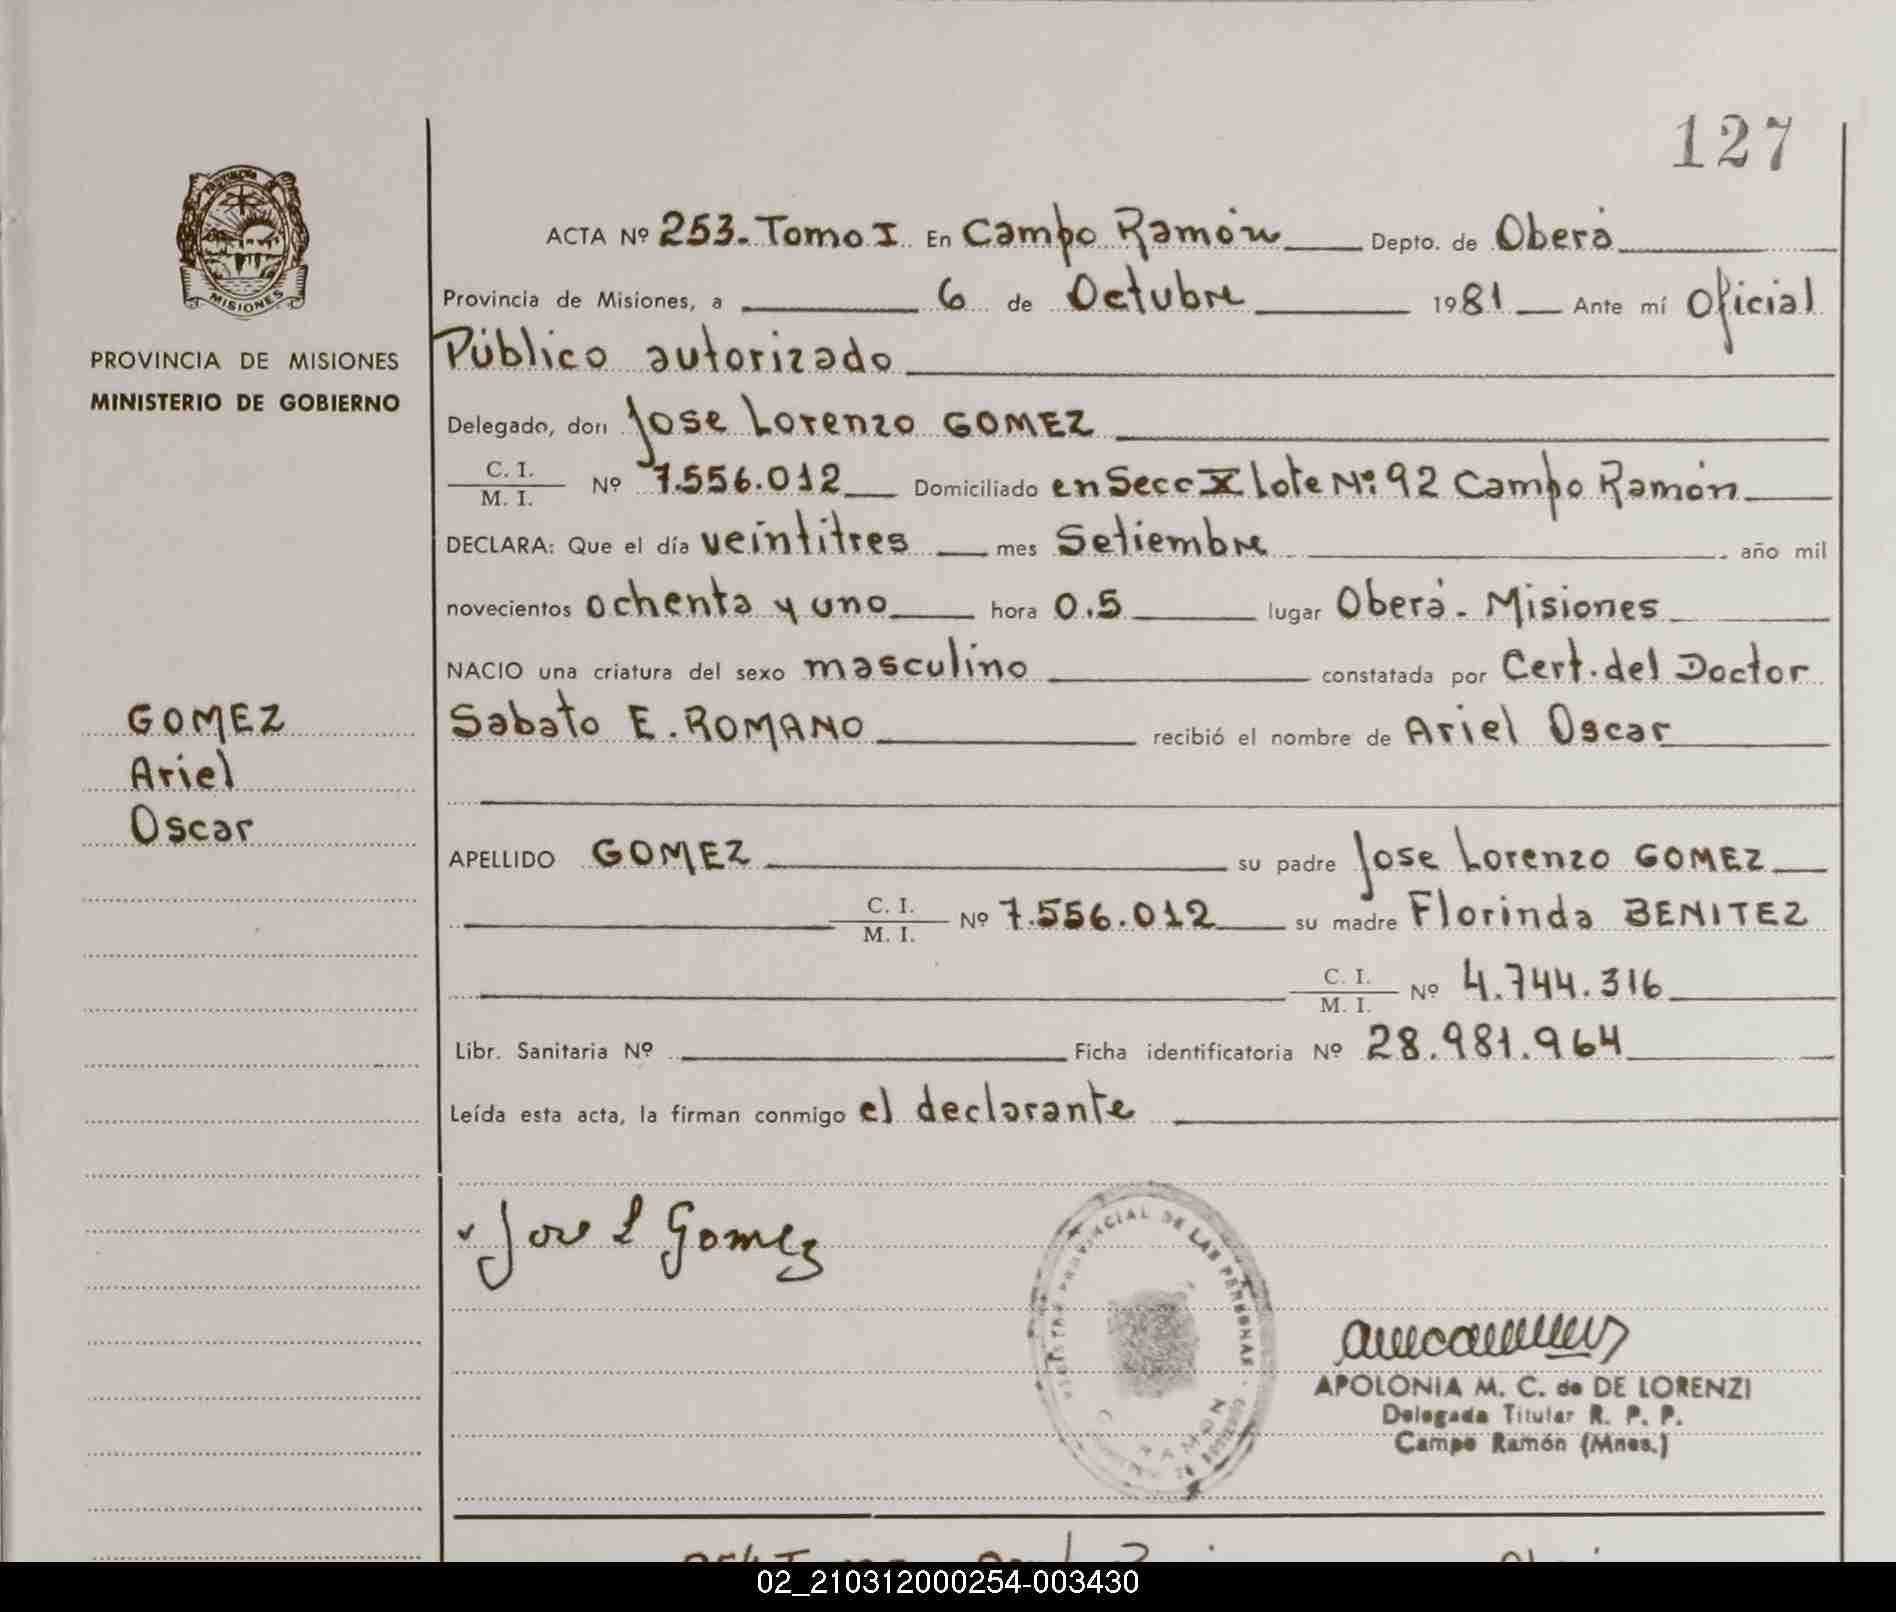 127
ACTA Nº 253. Tomo I En Campo Ramón Depto. de Oberá
Provincia de Misiones, a 6 de Octubre 1981 Ante mí Oficial
Público autorizado
Delegado, don Jose Lorenzo GOMEZ
C. I.
M. I. Nº 7.556.012 Domiciliado en Secc X lote Nº: 92 Campo Ramón
DECLARA: Que el día veintitres mes Setiembre año mil
novecientos ochenta y uno hora 0.5 lugar Oberá - Misiones
NACIO una criatura del sexo masculino constatada por Cert. del Doctor
Sabato E. ROMANO recibió el nombre de Ariel Oscar
APELLIDO GOMEZ su padre Jose Lorenzo GOMEZ
C. I.
M. I. Nº 7.556.012 su madre Florinda BENITEZ
C. I.
M. I. Nº 4.744.316
Libr. Sanitaria Nº Ficha identificatoria Nº 28.981.964
Leída esta acta, la firman conmigo el declarante
Jose L Gomez
PROVINCIAL DE LAS PERSONAS
APOLONIA M. C. de DE LORENZI
Delegada Titular R. P. P.
Campo Ramón (Mnes.)
PROVINCIA
MISIONES
PROVINCIA DE MISIONES
MINISTERIO DE GOBIERNO
GOMEZ
Ariel
Oscar
02_210312000254-003430